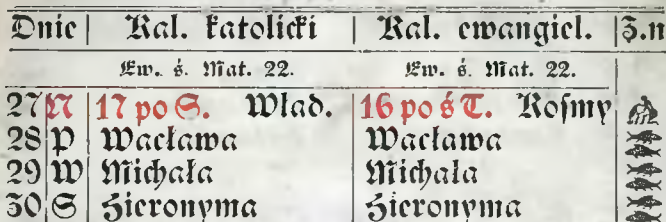 Dnie | Kal. katolicki | Kal. ewangiel. | Z.n
Ew. ś. Mat. 22. Ew. ś. Mat. 22.
27 N 17 po S. Wlad. 16 po ś T. Kosmy
28 P Wacława Wacława
29 W Michała Michała
30 S Hieronyma Hieronyma